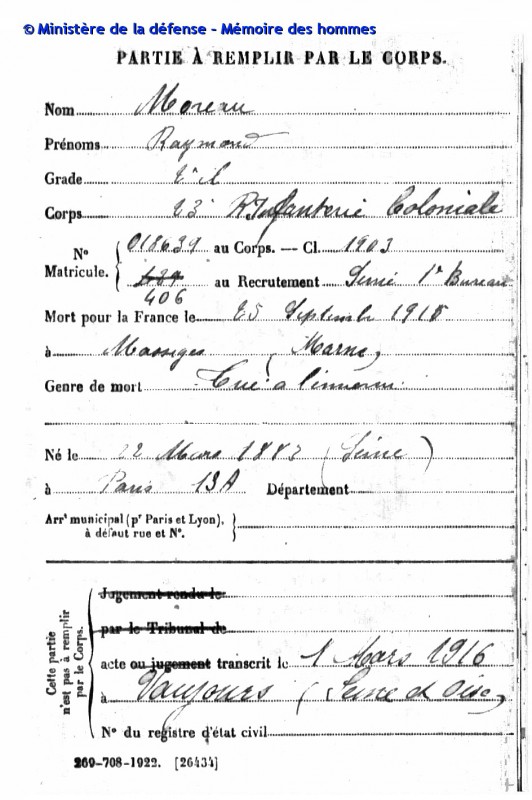 © Ministère de la défense - Mémoire des hommes
PARTIE À REMPLIR PAR LE CORPS.
Nom Moreau
Prénoms Raymond
Grade 2e cl
Corps 23e R Infanterie Coloniale
No Matricule. 018639 au Corps. — Cl. 1903
406 au Recrutement Seine 1r Bureau
Mort pour la France le 25 Septembre 1915
à Massiges (Marne)
Genre de mort Tué à l'ennemi
Né le 22 Mars 1883 (Seine)
à Paris 13A Département
Arrt municipal (pr Paris et Lyon),
à défaut rue et No.
Cette partie
n'est pas à remplir
par le Corps.
Jugement rendu le
par le Tribunal de
acte ou jugement transcrit le 1 Mars 1916
à Vaujours (Seine et Oise)
No du registre d'état civil
269-708-1922. [26434]